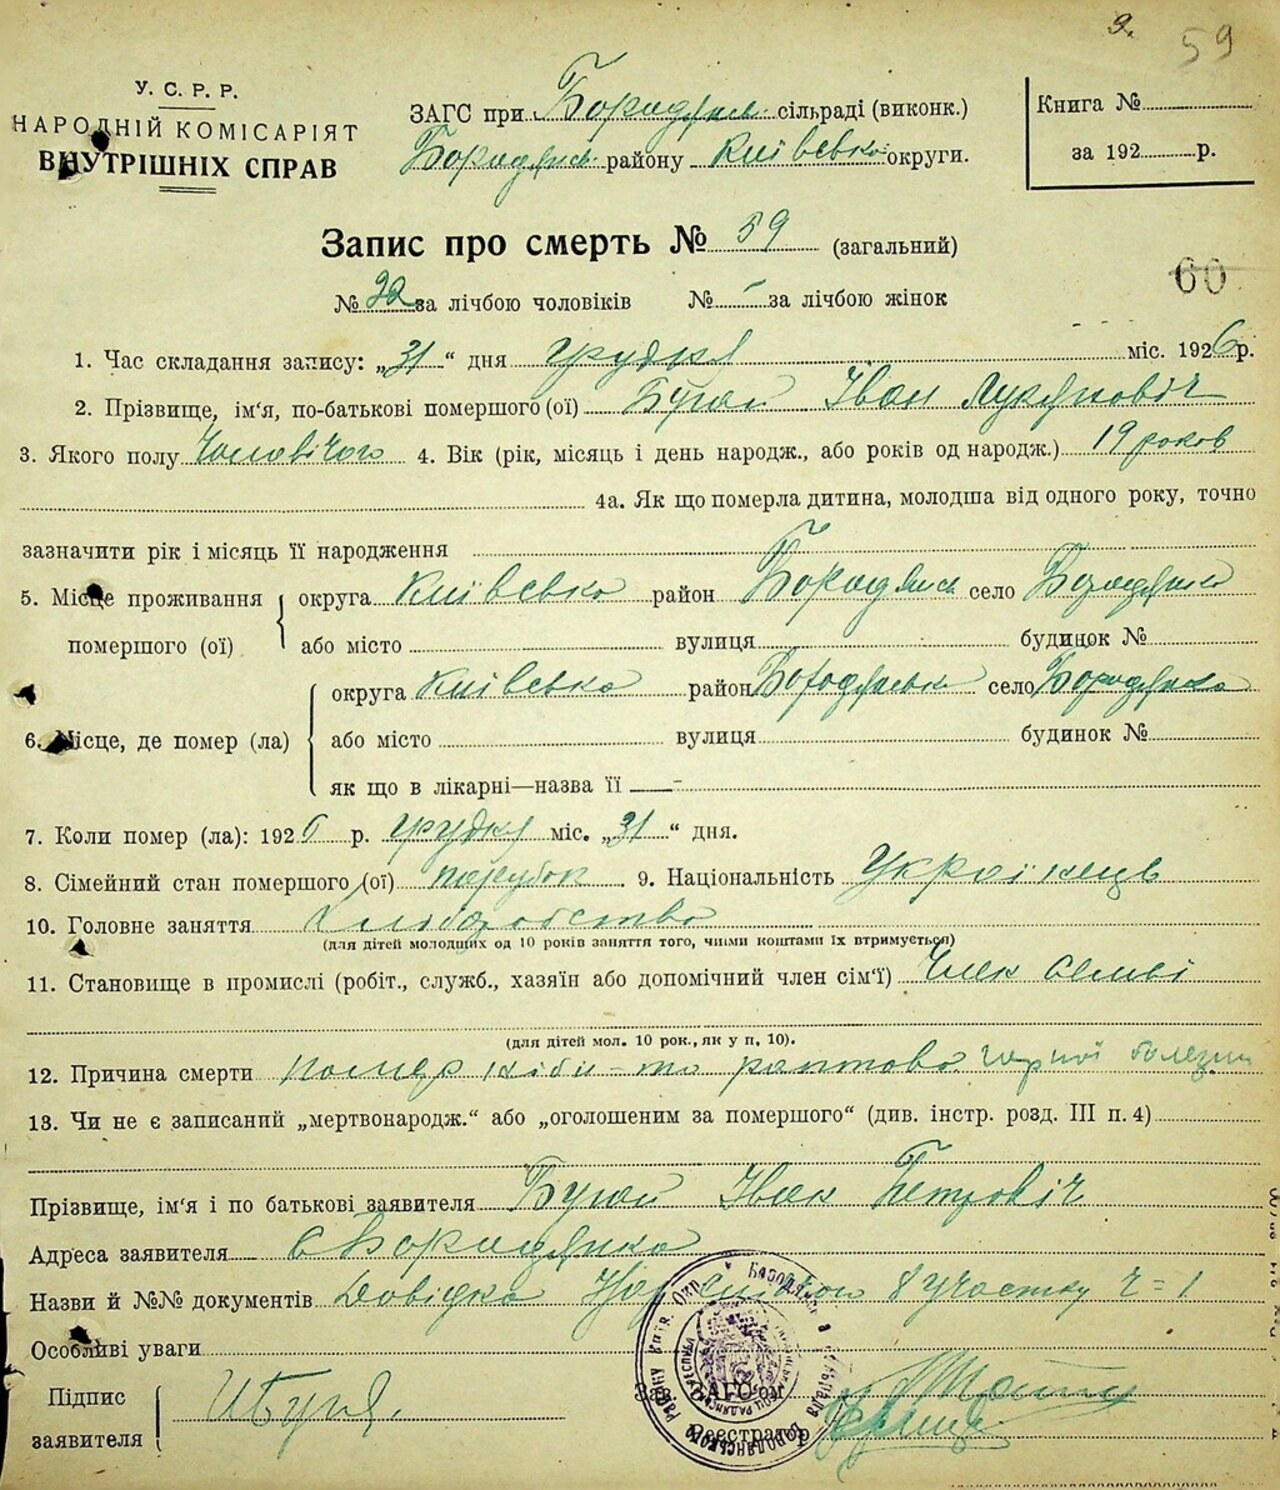 9. 59
У. С. Р. Р.
НАРОДНІЙ КОМІСАРІЯТ
ВНУТРІШНІХ СПРАВ
ЗАГС при Бородянск. сільраді (виконк.)
Бородянск. району Київсько округи.
Книга №
за 192 р.
Запис про смерть № 59 (загальний)
60
№ 32 за лічбою чоловіків № - за лічбою жінок
1. Час складання запису: „31“ дня грудня міс. 1926 р.
2. Прізвище, ім'я, по-батькові помершого (ої) Іван Лук'янович
3. Якого полу Чоловічого 4. Вік (рік, місяць і день народж., або років од народж.) 19 років
4а. Як що померла дитина, молодша від одного року, точно
зазначити рік і місяць її народження
5. Місце проживання помершого (ої)
округа Київсько район Бородянск село Бородянко
або місто вулиця будинок №
6. Місце, де помер (ла)
округа Київсько район Бородянськ село Бородянка
або місто вулиця будинок №
як що в лікарні—назва її —
7. Коли помер (ла): 1926 р. грудня міс. „31“ дня.
8. Сімейний стан помершого (ої) парубок 9. Національність Українець
10. Головне заняття Хліборобство
(для дітей молодших од 10 років заняття того, чиїми коштами їх втримується)
11. Становище в промислі (робіт., служб., хазяїн або допомічний член сім'ї) Член семьі
(для дітей мол. 10 рок., як у п. 10).
12. Причина смерти помер ніби-то раптово чорної болезни
13. Чи не є записаний „мертвонародж.“ або „оголошеним за помершого“ (див. інстр. розд. III п. 4)
Прізвище, ім'я і по батькові заявителя Іван Петровіч
Адреса заявителя с Бородянка
Назви й №№ документів Довідка 8 участку ч = 1
Особливі уваги
Підпис заявителя
Зав. ЗАГС'ом
Реєстратор